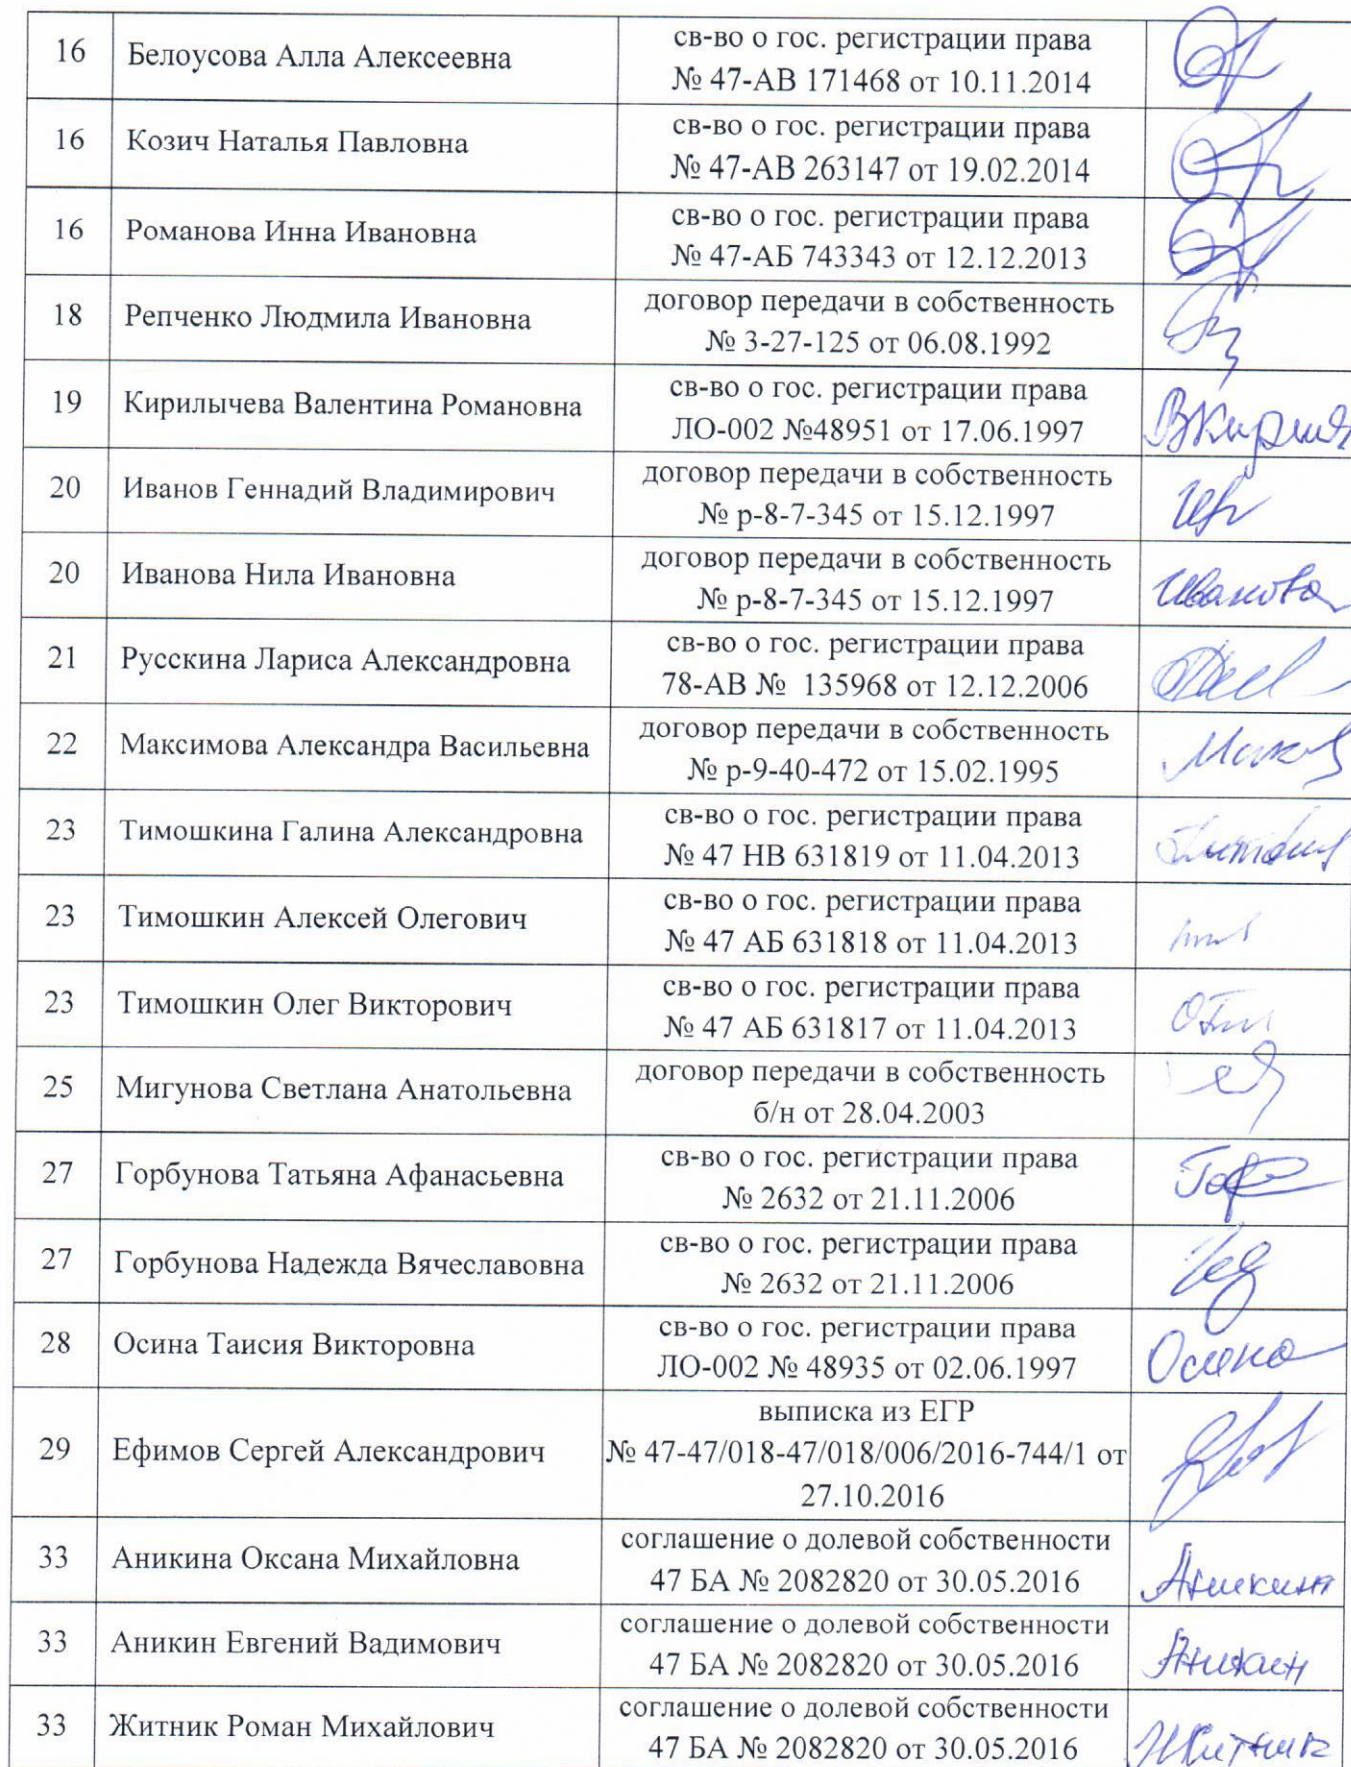 16 Белоусова Алла Алексеевна св-во о гос. регистрации права
№ 47-АВ 171468 от 10.11.2014
16 Козич Наталья Павловна св-во о гос. регистрации права
№ 47-АВ 263147 от 19.02.2014
16 Романова Инна Ивановна св-во о гос. регистрации права
№ 47-АБ 743343 от 12.12.2013
18 Репченко Людмила Ивановна договор передачи в собственность
№ 3-27-125 от 06.08.1992
19 Кирилычева Валентина Романовна св-во о гос. регистрации права
ЛО-002 №48951 от 17.06.1997
20 Иванов Геннадий Владимирович договор передачи в собственность
№ р-8-7-345 от 15.12.1997
20 Иванова Нила Ивановна договор передачи в собственность
№ р-8-7-345 от 15.12.1997 Иванова
21 Русскина Лариса Александровна св-во о гос. регистрации права
78-АВ № 135968 от 12.12.2006
22 Максимова Александра Васильевна договор передачи в собственность
№ р-9-40-472 от 15.02.1995
23 Тимошкина Галина Александровна св-во о гос. регистрации права
№ 47 НВ 631819 от 11.04.2013
23 Тимошкин Алексей Олегович св-во о гос. регистрации права
№ 47 АБ 631818 от 11.04.2013
23 Тимошкин Олег Викторович св-во о гос. регистрации права
№ 47 АБ 631817 от 11.04.2013
25 Мигунова Светлана Анатольевна договор передачи в собственность
б/н от 28.04.2003
27 Горбунова Татьяна Афанасьевна св-во о гос. регистрации права
№ 2632 от 21.11.2006
27 Горбунова Надежда Вячеславовна св-во о гос. регистрации права
№ 2632 от 21.11.2006
28 Осина Таисия Викторовна св-во о гос. регистрации права
ЛО-002 № 48935 от 02.06.1997 Осина
29 Ефимов Сергей Александрович выписка из ЕГР
№ 47-47/018-47/018/006/2016-744/1 от
27.10.2016
33 Аникина Оксана Михайловна соглашение о долевой собственности
47 БА № 2082820 от 30.05.2016
33 Аникин Евгений Вадимович соглашение о долевой собственности
47 БА № 2082820 от 30.05.2016 Аникин
33 Житник Роман Михайлович соглашение о долевой собственности
47 БА № 2082820 от 30.05.2016 Житник